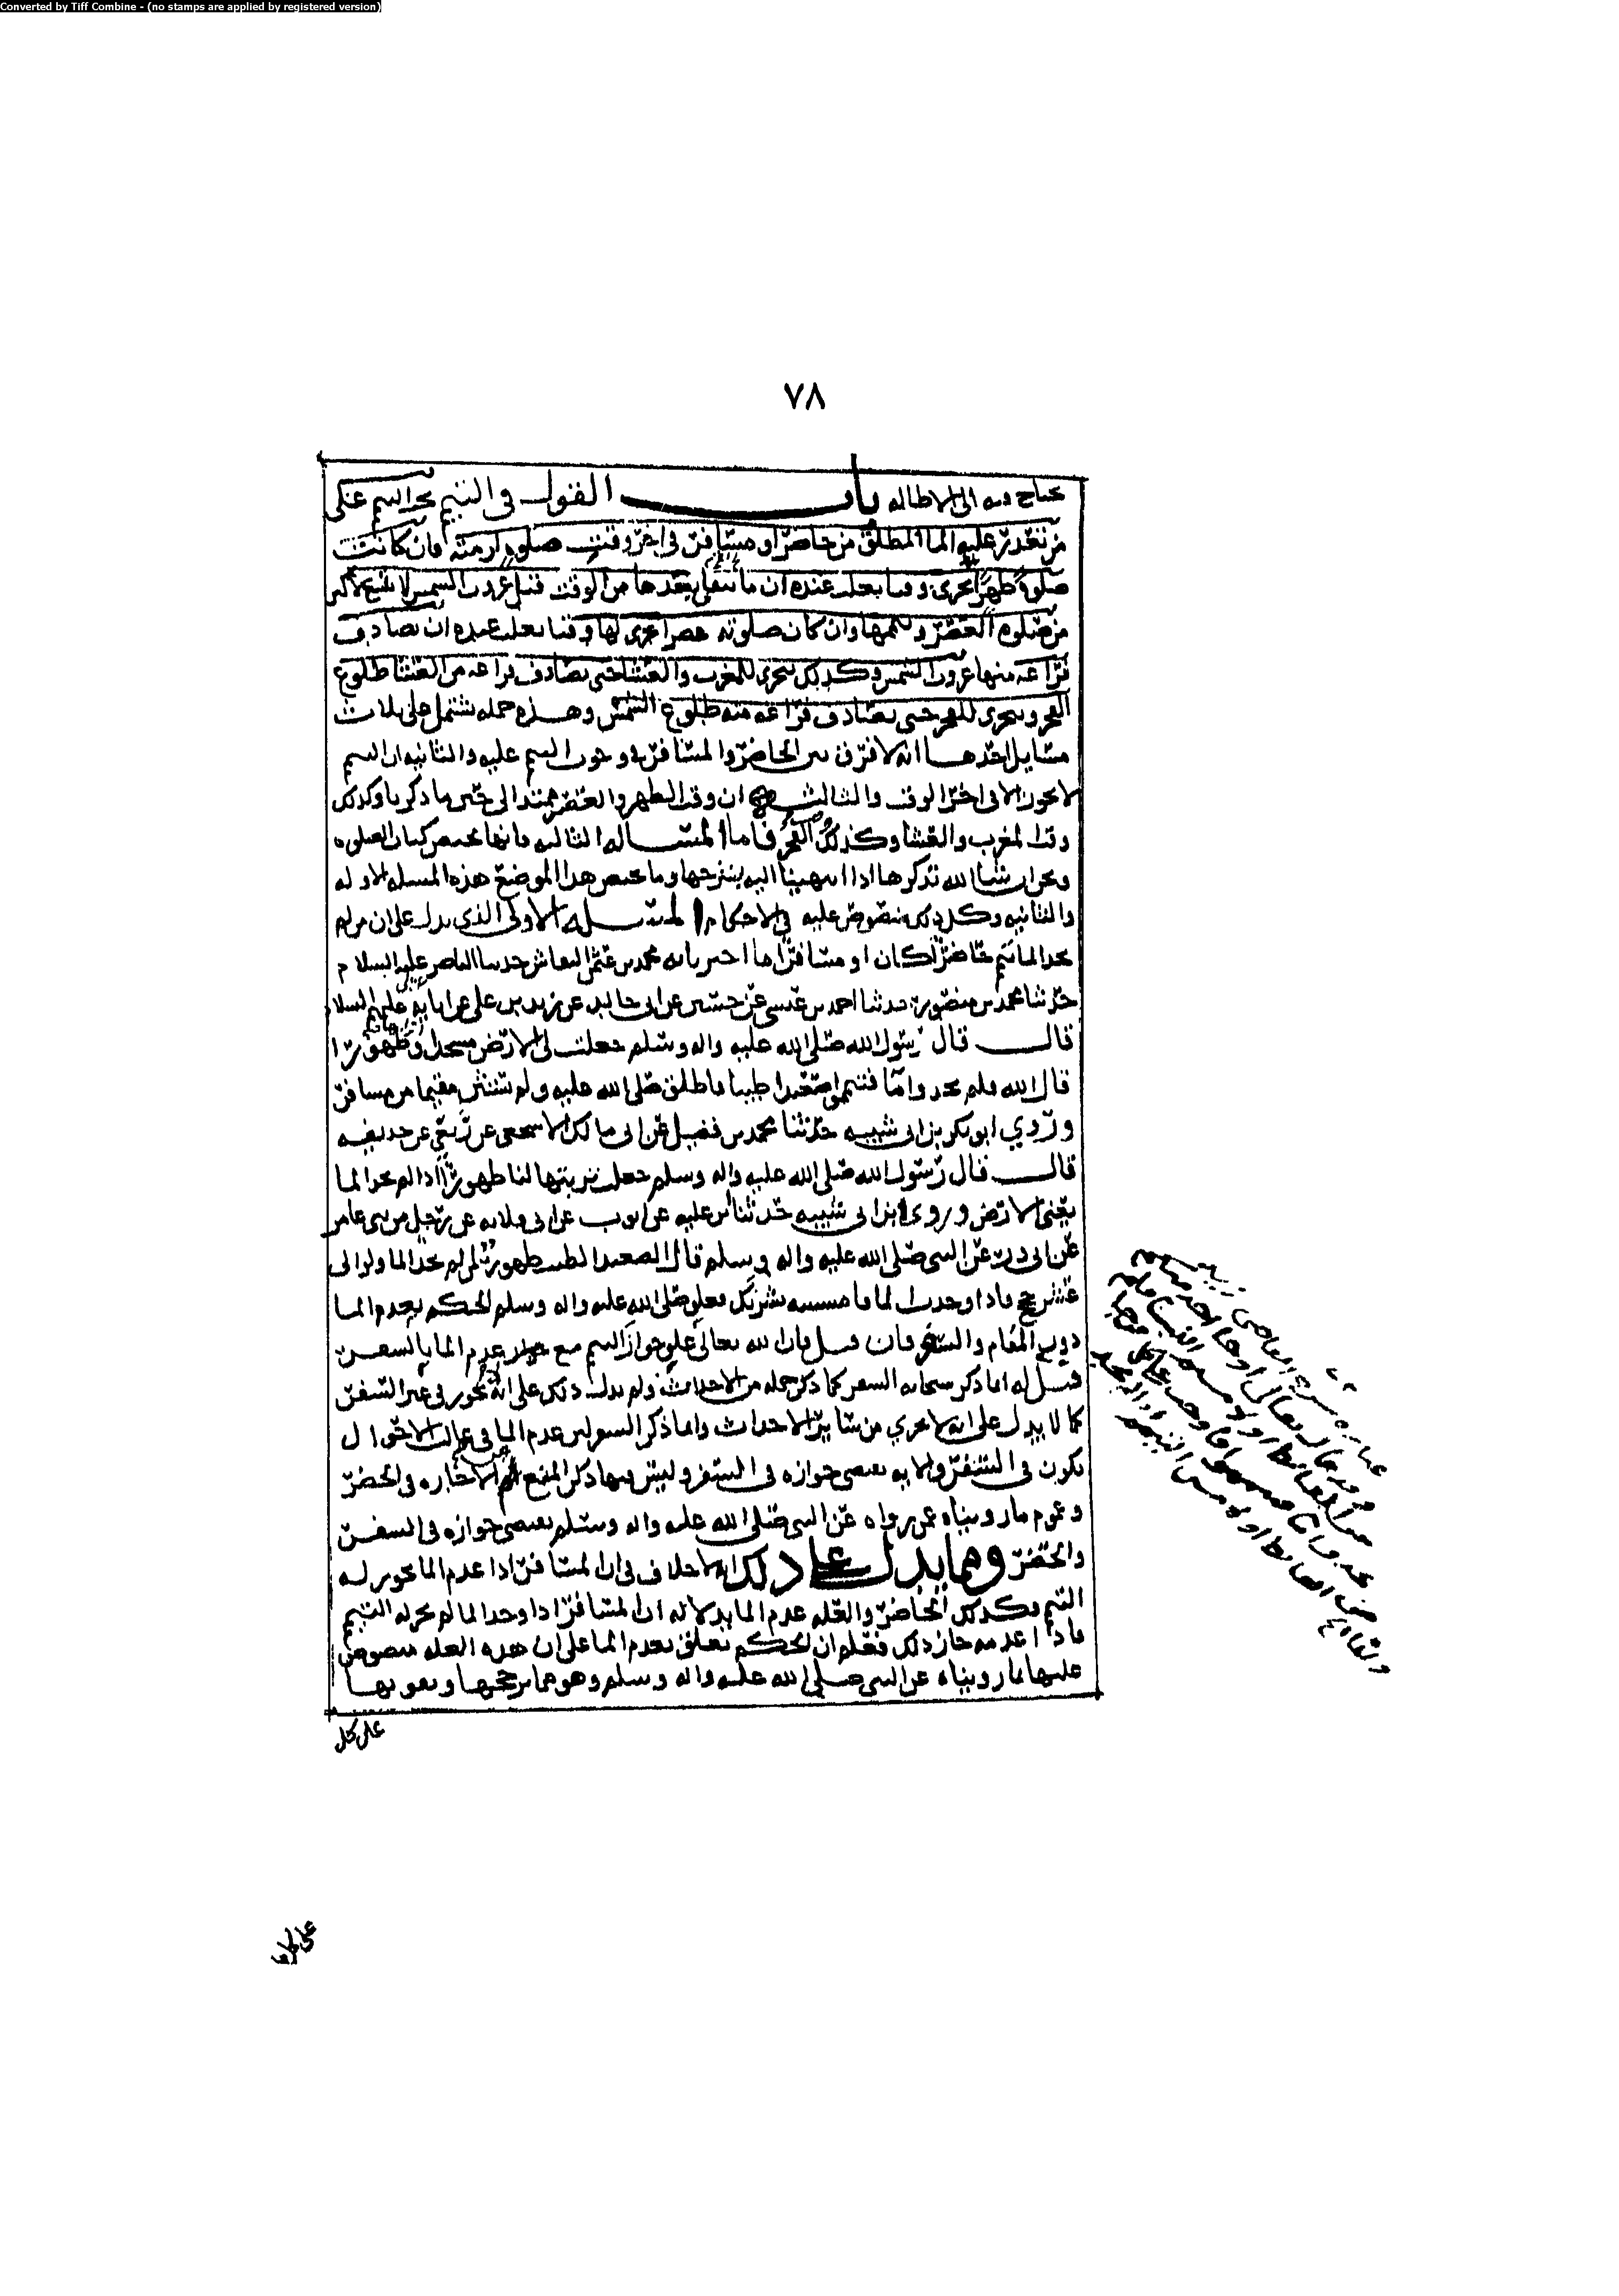 Converted by Tiff Combine - (no stamps are applied by registered version)
٧٨
يحتاج فيه الى الاطاله باب القول في التيمم يجب التيمم على
من تعذر عليه الما المطلق من حاضر او مسافر في اخر وقت صلوه لزمته فان كانت
صلوة ظهرا تحرى وقتا يغلب عنده ان ما تبقى بعدها من الوقت قبل غروب الشمس لا يتسع لاكثر
من صلوه العصر وتيممها وان كان صلوته عصرا تحرى لها وقتا يغلب عنده ان يصادف
فراغه منها غروب الشمس وكذلك يتحرى للمغرب والعشا حتى يصادف فراغه من العشا طلوع
الفجر ويتحرى للفجر حتى يصادف فراغه منه طلوع الشمس وهذه جمله تشتمل على ثلاث
مسايل احدها انه لا فرق بين الحاضر والمسافر في وجوب التيمم عليه والثانيه ان التيمم
لا يجوز الا في اخر الوقت والثالث ان وقت الظهر والعصر يمتد الى حين ما ذكرنا وكذلك
وقت المغرب والعشا وكذلك الفجر فاما المسئاله الثالثه فانها تختص كتاب الصلوه
ونحن ان شا الله نذكرها اذا انتهينا اليه بشرحها وما يختص هذا الموضع هذه المسئله الاوله
والثانيه وكل ذلك منصوص عليه في الاحكام المسئله الاولى الذي يدل على ان من لم
يجد الما تيمم حاضرا كان او مسافرا ما اخبرنا به محمد بن عثمن النقاش حدثنا الناصر عليه السلام
حدثنا محمد بن منصور حدثنا احمد بن عيسى عن حسين عن ابي خالد عن زيد بن علي عن ابايه عن علي عليهم السلام
قال قال رسول الله صلى الله عليه واله وسلم جعلت لي الارض مسجدا وطهورا
قال الله فلم تجدوا ما فتيمموا صعيدا طيبا فاطلق صلى الله عليه ولم يستثن مقيما من مسافر
وروي ابو بكر بن ابي شيبه حدثنا محمد بن فضيل عن ابي مالك الاشجعي عن ربعي عن حذيفه
قال قال رسول الله صلى الله عليه واله وسلم جعلت تربتها لنا طهورا اذا لم نجد الما
يعني الارض وروى ابن ابي شيبه حدثنا ابن عليه عن ايوب عن ابي قلابه عن رجل من بني عامر
عن ابي ذر عن النبي صلى الله عليه واله وسلم قال الصعيد الطيب طهور لمن لم يجد الما ولو الى
عشر حجج فاذا وجدت الما فامسسه بشرتك فعلق صلى الله عليه واله وسلم الحكم بعدم الما
دون المقام والسفر فان قيل فان الله تعالى علق جواز التيمم مع عدم الما بالسفر
قيل له انما ذكر سبحانه السفر كما ذكر جمله من الاحداث ولم يدل ذلك على انه لا يجوز في غير السفر
كما لا يدل على انه لا يجري من ساير الاحداث وانما ذكر السفر لان عدم الما في غالب الاحوال
يكون في السفر والايه تقتضي جوازه في السفر وليس فيها ذكر المنع من اختياره في الحضر
وعموم ما رويناه عمن رواه عن النبي صلى الله عليه واله وسلم يقتضي جوازه في السفر
والحضر ومما يدل على ذلك انه لا خلاف في ان المسافر اذا عدم الما يجوز له
التيمم فكذلك الحاضر والعله عدم الما بدلاله ان المسافر اذا وجد الما لم يجز له التيمم
فاذا عدمه جاز ذلك فعلم ان الحكم تعلق بعدم الما على ان هذه العله منصوص
عليها لما رويناه عن النبي صلى الله عليه واله وسلم وهو مما يرجحها ويقويها
على كل